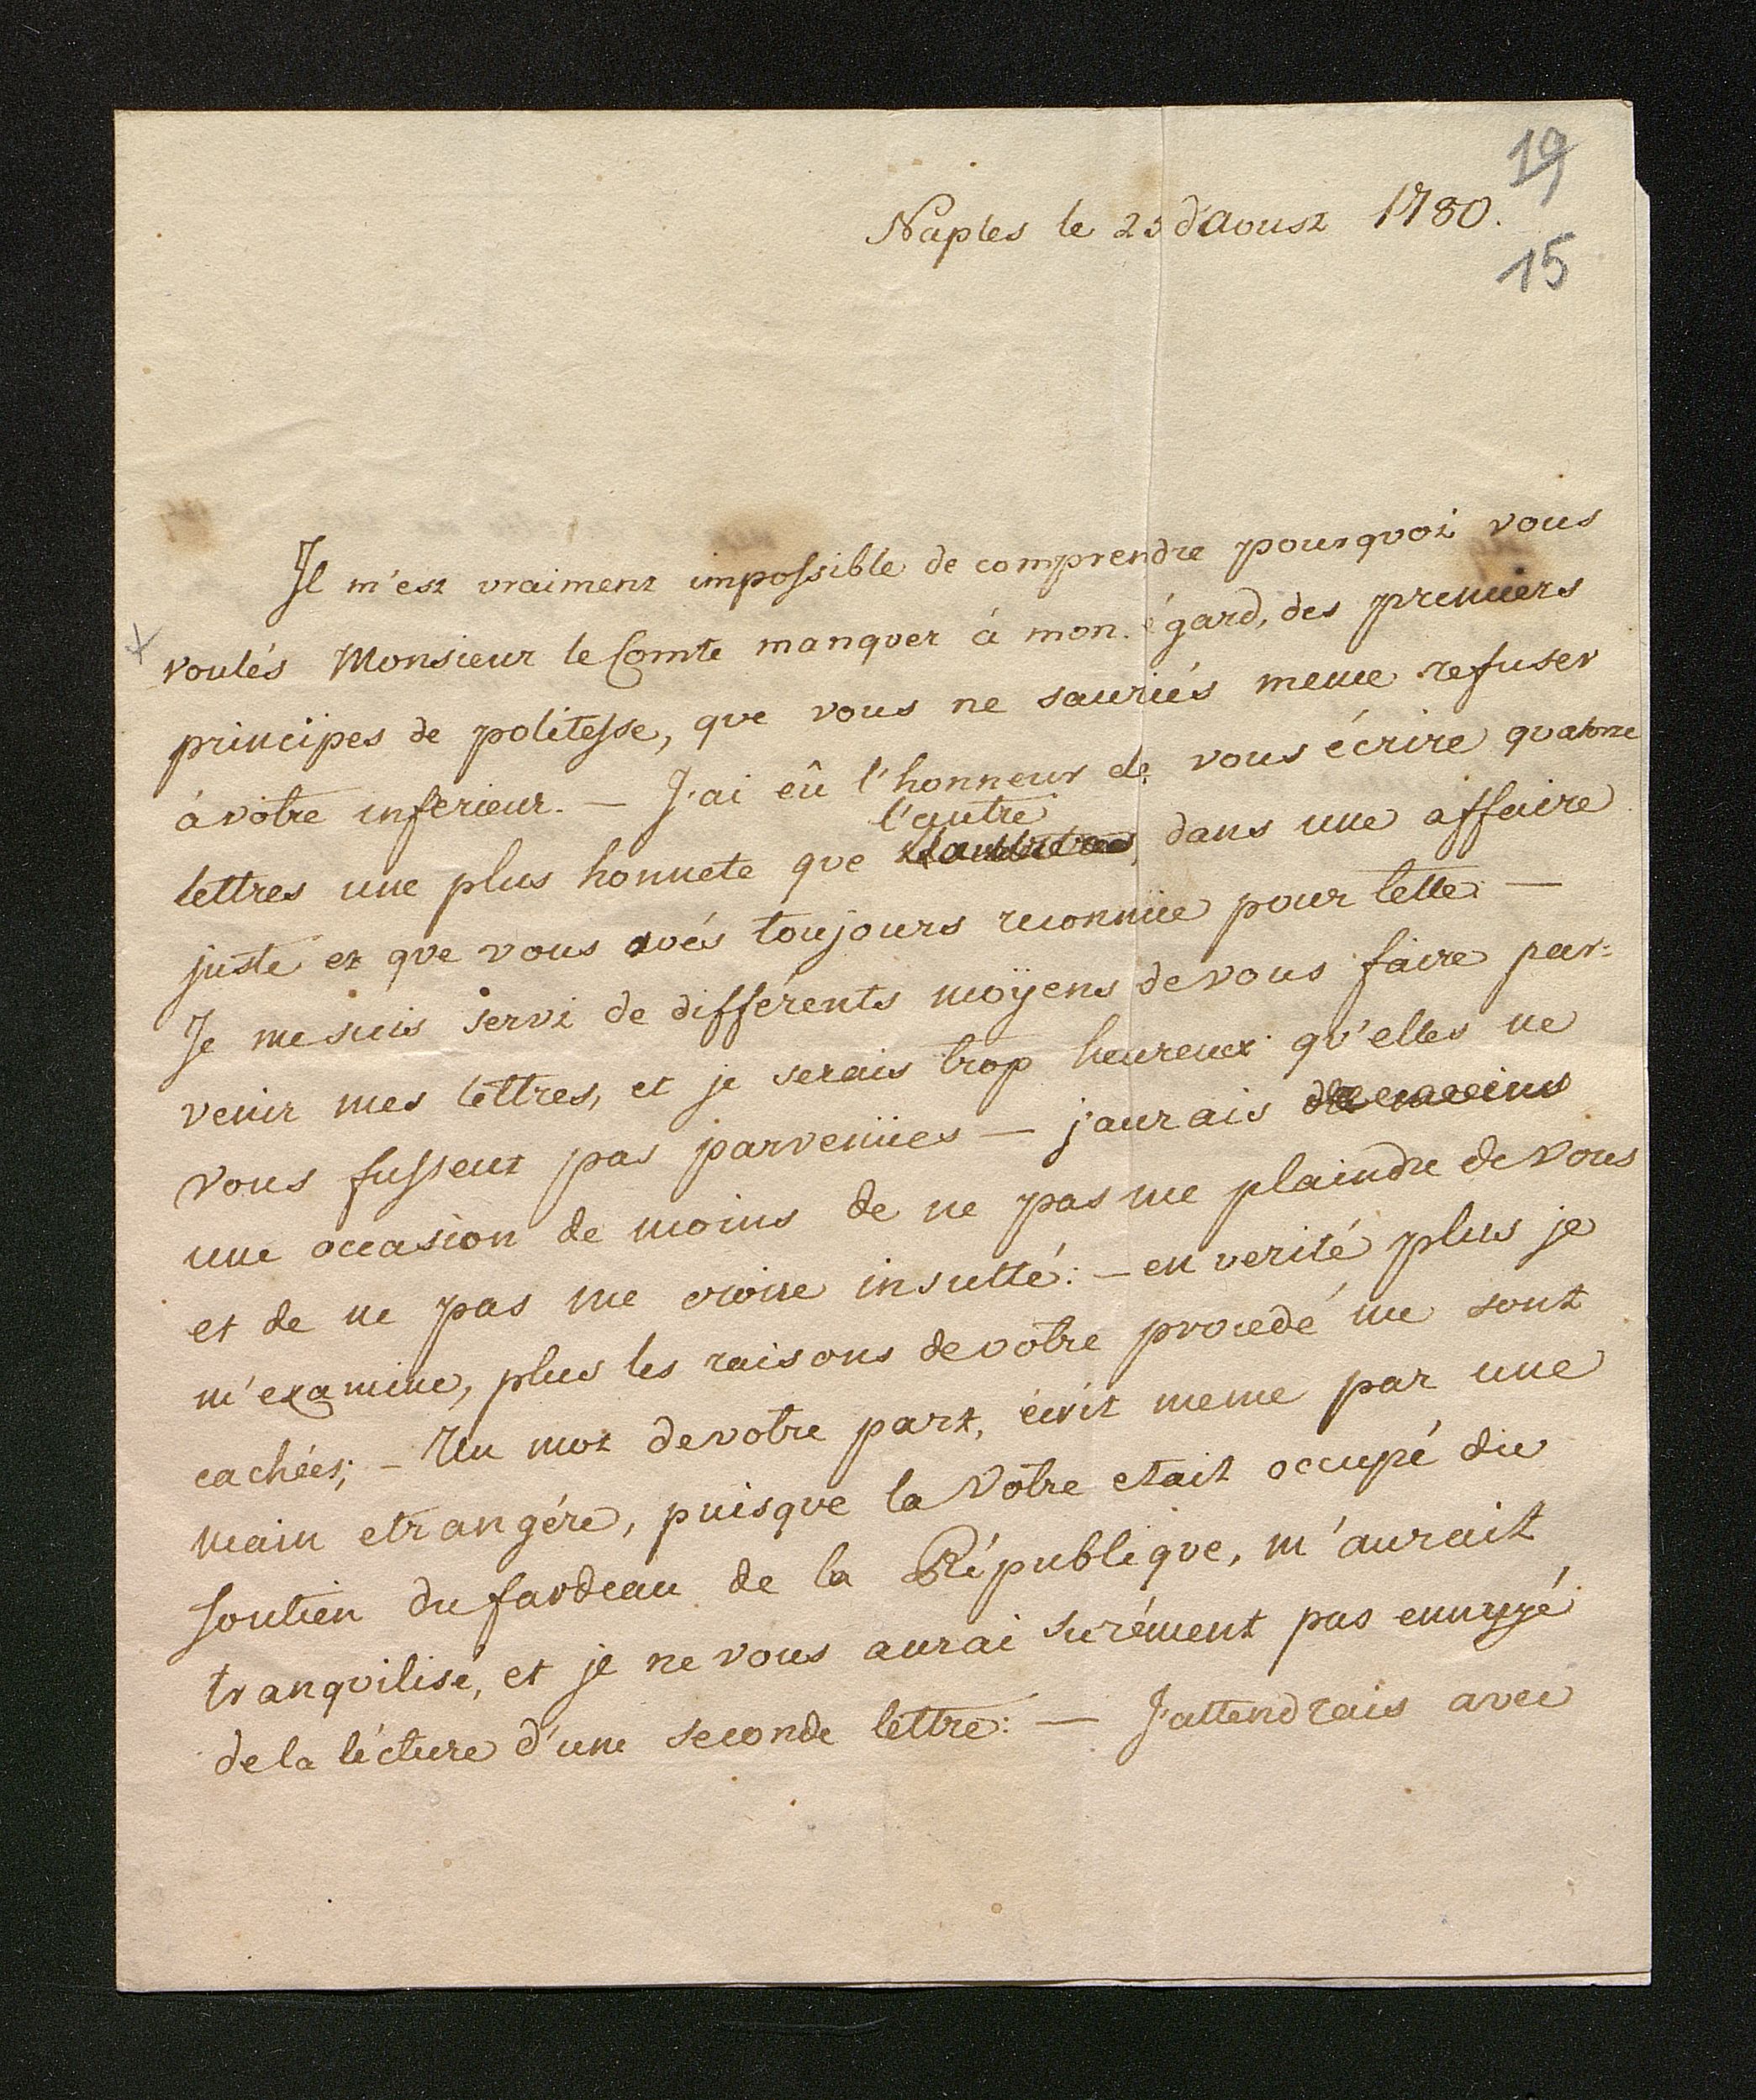 19
Naples le 25 d'Aoust 1780.
15
Il m'est vraiment impossible de comprendre pourquoi vous
voulés Monsieur le Comte manquer à mon égard, des premiers
principes de politesse, que vous ne sauriés meme refuser
à votre inferieur. — J'ai eû l'honneur de vous écrire quatorze
l'autre
lettres une plus honnete que dans une affaire
juste et que vous avés toujours reconnüe pour telle: —
Je me suis servi de différents moÿens de vous faire par-
venir mes lettres, et je serais trop heureux qu'elles ne
vous fussent pas parvenües — j'aurais
une occasion de moins de ne pas me plaindre de vous
et de ne pas me croire insulté: — en verité plus je
m'examine, plus les raisons de votre procedé me sont
cachées; — Un mot de votre part, écrit meme par une
main etrangére, puisque la Votre etait occupé du
soutien du fardeau de la République, m'aurait
tranquilisé, et je ne vous aurai surément pas ennuyé
de la lécture d'une seconde lettre: — J'attendrais avec